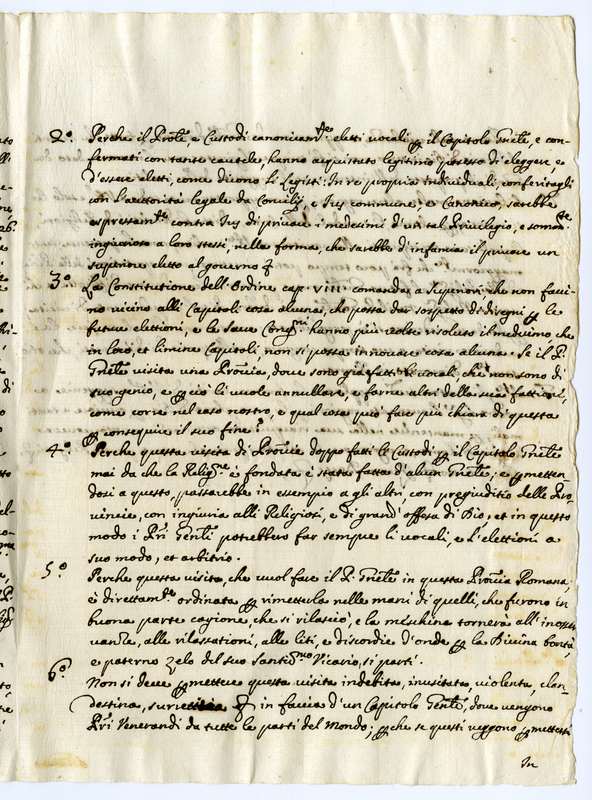 2.° Perche il Prōle, e Custodi canonicam.te eletti vocali p il Capitolo Gn̄le, e con-
fermati con tante cautele, hanno acquistato legitimo possesso di eleggere, e
d'essere eletti, come dicono li Legisti: In re propria individuali, conferitagli
con l'autorità legale da Concilij, e Ius commune, e Canonico, sarebbe
espressam.te contra Ius di privare i medesimi d'un tal Privilegio, e
ingiurioso a loro stessi, nella forma, che sarebbe d'infamia il privare un
superiore eletto al governo
3.° La Constitutione dell'Ordine cap. VIII. comanda a Superiori, che non facci-
no vicino alli Capitoli cosa alcuna, che possa dar sospetto di disegni p le
future elettioni, e la Sacra Cong.ni hanno più volte risoluto il medesimo che
in loco, et limine Capitoli, non si possa innovare cosa alcuna. Se il P.
Gn̄le visita una Prōvia, dove sono già fatti li vocali, che non sono di
suo genio, e p ciò li vuole annullare, e farne altri della sua fattione,
come corre nel caso nostro, e qual cosa può fare più chiara di questa
p conseguire il suo fine?
4.° Perche questa visita di Prōvie doppo fatti le Custodi p il Capitolo Gn̄le
mai da che la Relig.ne è fondata è stata fatta d'alcun Gn̄le; e pmetten-
dosi a questo, passarebbe in essempio a gli altri, con pregiuditio delle Pro
vincie, con ingiuria alli Religiosi, e di grand'offesa di Dio, et in questo
modo i Pri Gn̄li potrebbero far sempre li vocali, e l'elettioni a
suo modo, et arbitrio.
5.° Perche questa visita, che vuol fare il P. Gn̄le in questa Prōvia Romana,
è direttam.te ordinata p rimetterla nelle mani di quelli, che furono in
buona parte cagione, che si rilasciò, e la meschina tornerà all'inosser
vanza, alle rilassationi, alle liti, e discordie d'onde p la Divina bontà,
e paterno zelo del suo Santis.mo Vicario, si partì.
6.° Non si deve pmettere questa visita indebita, inusitata, violenta, clan-
destina, in faccia d'un Capitolo Gn̄le, dove vengono
Pri Venerandi da tutte le parti del Mondo; pche se questi veggono pmettersi
In